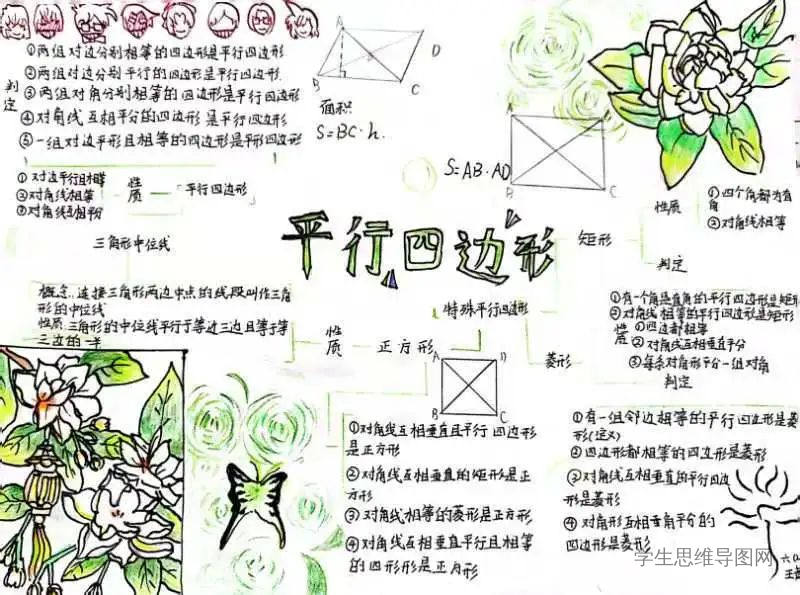 ①两组对边分别相等的四边形是平行四边形
②两组对边分别平行的四边形是平行四边形.
③两组对角分别相等的四边形是平行四边形
④对角线互相平分的四边形是平行四边形
⑤一组对边平形且相等的四边形是平形四边形
判定
A
D
B
C
面积
S=BC·h.
A
S=AB·AD
B
C
①对边平行且相等
②对角线相等
③对角线互相平分
性质
平行四边形
三角形中位线
概念:连接三角形两边中点的线段叫作三角
形的中位线
性质:三角形的中位线平行于等边三边且等于第
三边的一半
平行四边形
矩形
性质
①四个角都为直
角
②对角线相等
判定
①有一个角是直角的平行四边形是矩形
②对角线相等的平行四边形是矩形
特殊平行四边形
菱形
性质
①四边都相等
②对角线互相垂直平分
③每条对角形平分一组对角
判定
①有一组邻边相等的平行四边形是菱
形(定义)
②四边形都相等的四边形是菱形
③对角线互相垂直的平行四边
形是菱形
④对角形互相垂角平分的
四边形是菱形
性质
正方形
A
D
B
C
①对角线互相垂直且平行四边形
是正方形
②对角线互相垂直的矩形是正
方形
③对角线相等的菱形是正方形
④对角线互相垂直平行且相等
的四形形是正方形
学生思维导图网